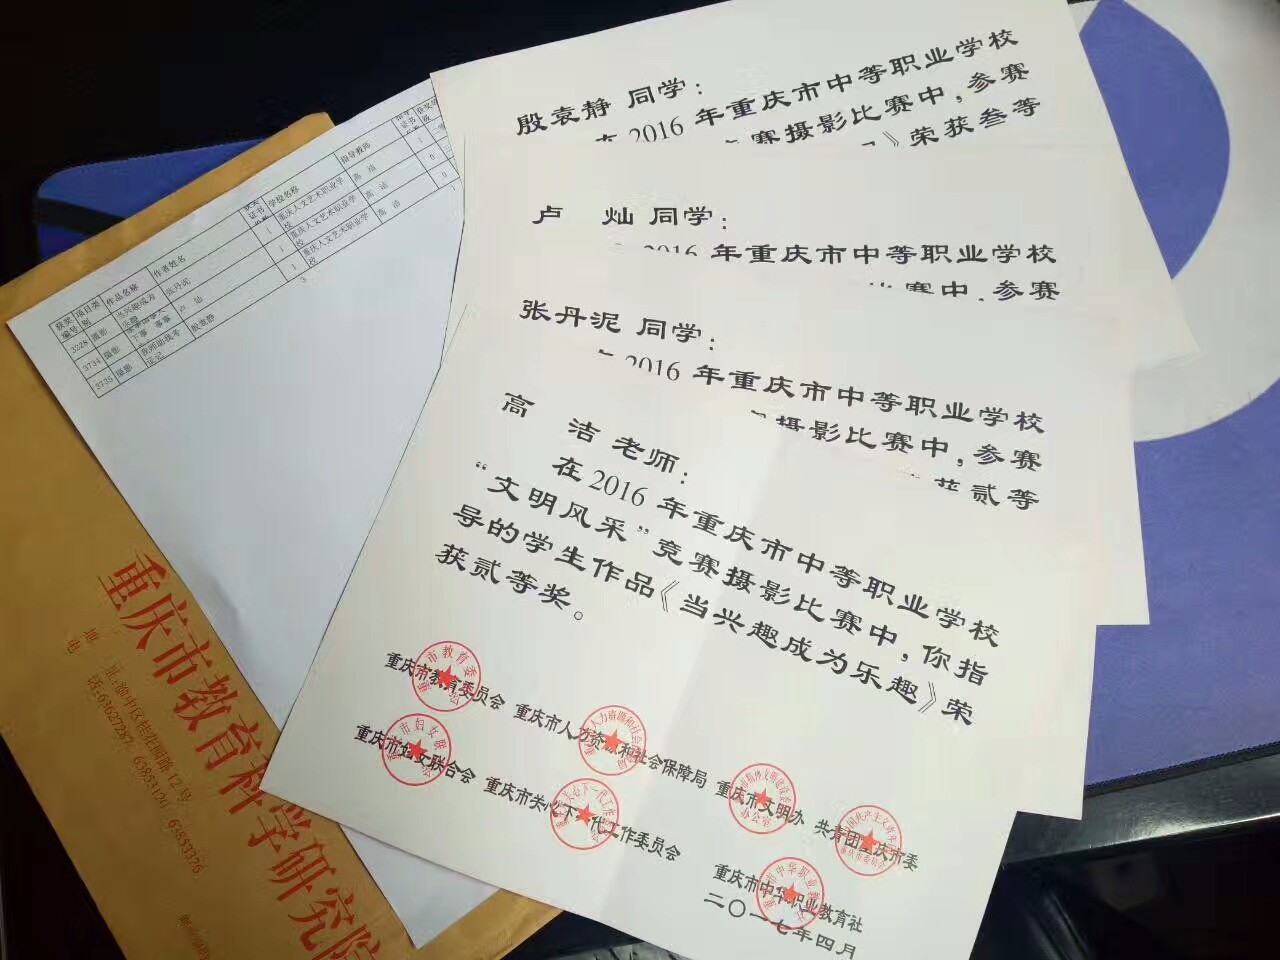 殷袁静 同学：
在 2016 年重庆市中等职业学校
赛摄影比赛中，参赛
》荣获叁等
卢 灿 同学：
2016 年重庆市中等职业学校
业比赛中，参赛
张丹泥 同学：
在 2016 年重庆市中等职业学校
摄影比赛中，参赛
获贰等
高 洁 老师：
在 2016 年重庆市中等职业学校
“文明风采”竞赛摄影比赛中，你指
导的学生作品《当兴趣成为乐趣》荣
获贰等奖。
重庆市教育委员会 重庆市人力资源和社会保障局 重庆市文明办 共青团重庆市委
重庆市妇女联合会 重庆市关心下一代工作委员会 重庆市中华职业教育社
二〇一七年四月
获奖编号 项目类别 作品名称 作者姓名 获奖证书 学校名称 指导教师
3228 摄影 当兴趣成为乐趣 张丹泥 1 重庆人文艺术职业学校 高 洁 1
3734 摄影 卢 灿 1 重庆人文艺术职业学校 高 洁 0
3735 摄影 殷袁静 1 重庆人文艺术职业学校 高 洁 0
3 1
重庆市教育科学研究院
地 址：渝中区桂花园路12号
电 话：63627287 63853120 63853326